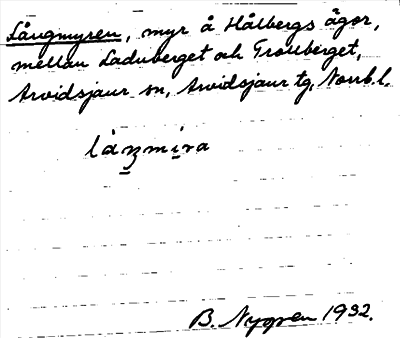 Långmyren, myr å Hålbergs ägor,
mellan Laduberget och Trollberget,
Arvidsjaur sn, Arvidsjaur tg, Norrb. l.
B. Nygren 1932.